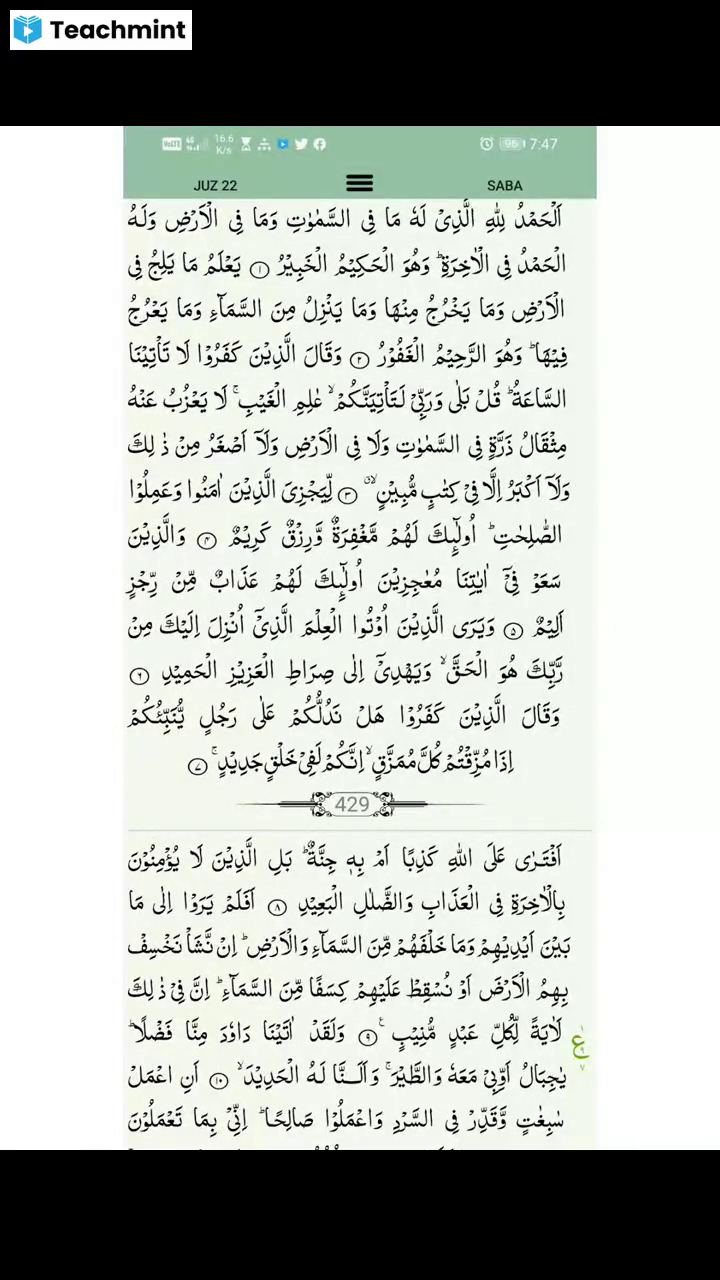 Teachmint
VoLTE 4G 16.6 K/s 96 7:47
JUZ 22 SABA
اَلْحَمْدُ لِلّٰهِ الَّذِیْ لَهٗ مَا فِی السَّمٰوٰتِ وَمَا فِی الْاَرْضِ وَلَهُ
الْحَمْدُ فِی الْاٰخِرَةِ ؕ وَهُوَ الْحَكِیْمُ الْخَبِیْرُ ۝۱ یَعْلَمُ مَا یَلِجُ فِی
الْاَرْضِ وَمَا یَخْرُجُ مِنْهَا وَمَا یَنْزِلُ مِنَ السَّمَآءِ وَمَا یَعْرُجُ
فِیْهَا ؕ وَهُوَ الرَّحِیْمُ الْغَفُوْرُ ۝۲ وَقَالَ الَّذِیْنَ كَفَرُوْا لَا تَاْتِیْنَا
السَّاعَةُ ؕ قُلْ بَلٰی وَرَبِّیْ لَتَاْتِیَنَّكُمْ ۙ عٰلِمِ الْغَیْبِ ۚ لَا یَعْزُبُ عَنْهُ
مِثْقَالُ ذَرَّةٍ فِی السَّمٰوٰتِ وَلَا فِی الْاَرْضِ وَلَاۤ اَصْغَرُ مِنْ ذٰلِكَ
وَلَاۤ اَكْبَرُ اِلَّا فِیْ كِتٰبٍ مُّبِیْنٍ ۙ ۝۳ لِّیَجْزِیَ الَّذِیْنَ اٰمَنُوْا وَعَمِلُوا
الصّٰلِحٰتِ ؕ اُولٰٓئِكَ لَهُمْ مَّغْفِرَةٌ وَّرِزْقٌ كَرِیْمٌ ۝۴ وَالَّذِیْنَ
سَعَوْ فِیْۤ اٰیٰتِنَا مُعٰجِزِیْنَ اُولٰٓئِكَ لَهُمْ عَذَابٌ مِّنْ رِّجْزٍ
اَلِیْمٌ ۝۵ وَیَرَی الَّذِیْنَ اُوْتُوا الْعِلْمَ الَّذِیْۤ اُنْزِلَ اِلَیْكَ مِنْ
رَّبِّكَ هُوَ الْحَقَّ ۙ وَیَهْدِیْۤ اِلٰی صِرَاطِ الْعَزِیْزِ الْحَمِیْدِ ۝۶
وَقَالَ الَّذِیْنَ كَفَرُوْا هَلْ نَدُلُّكُمْ عَلٰی رَجُلٍ یُّنَبِّئُكُمْ
اِذَا مُزِّقْتُمْ كُلَّ مُمَزَّقٍ ۙ اِنَّكُمْ لَفِیْ خَلْقٍ جَدِیْدٍ ۚ ۝۷
429
اَفْتَرٰی عَلَی اللّٰهِ كَذِبًا اَمْ بِهٖ جِنَّةٌ ؕ بَلِ الَّذِیْنَ لَا یُؤْمِنُوْنَ
بِالْاٰخِرَةِ فِی الْعَذَابِ وَالضَّلٰلِ الْبَعِیْدِ ۝۸ اَفَلَمْ یَرَوْا اِلٰی مَا
بَیْنَ اَیْدِیْهِمْ وَمَا خَلْفَهُمْ مِّنَ السَّمَآءِ وَالْاَرْضِ ؕ اِنْ نَّشَاْ نَخْسِفْ
بِهِمُ الْاَرْضَ اَوْ نُسْقِطْ عَلَیْهِمْ كِسَفًا مِّنَ السَّمَآءِ ؕ اِنَّ فِیْ ذٰلِكَ
لَاٰیَةً لِّكُلِّ عَبْدٍ مُّنِیْبٍ ۝۹ وَلَقَدْ اٰتَیْنَا دَاوٗدَ مِنَّا فَضْلًا ؕ
یٰجِبَالُ اَوِّبِیْ مَعَهٗ وَالطَّیْرَ ۚ وَاَلَنَّا لَهُ الْحَدِیْدَ ۙ ۝۱۰ اَنِ اعْمَلْ
سٰبِغٰتٍ وَّقَدِّرْ فِی السَّرْدِ وَاعْمَلُوْا صَالِحًا ؕ اِنِّیْ بِمَا تَعْمَلُوْنَ